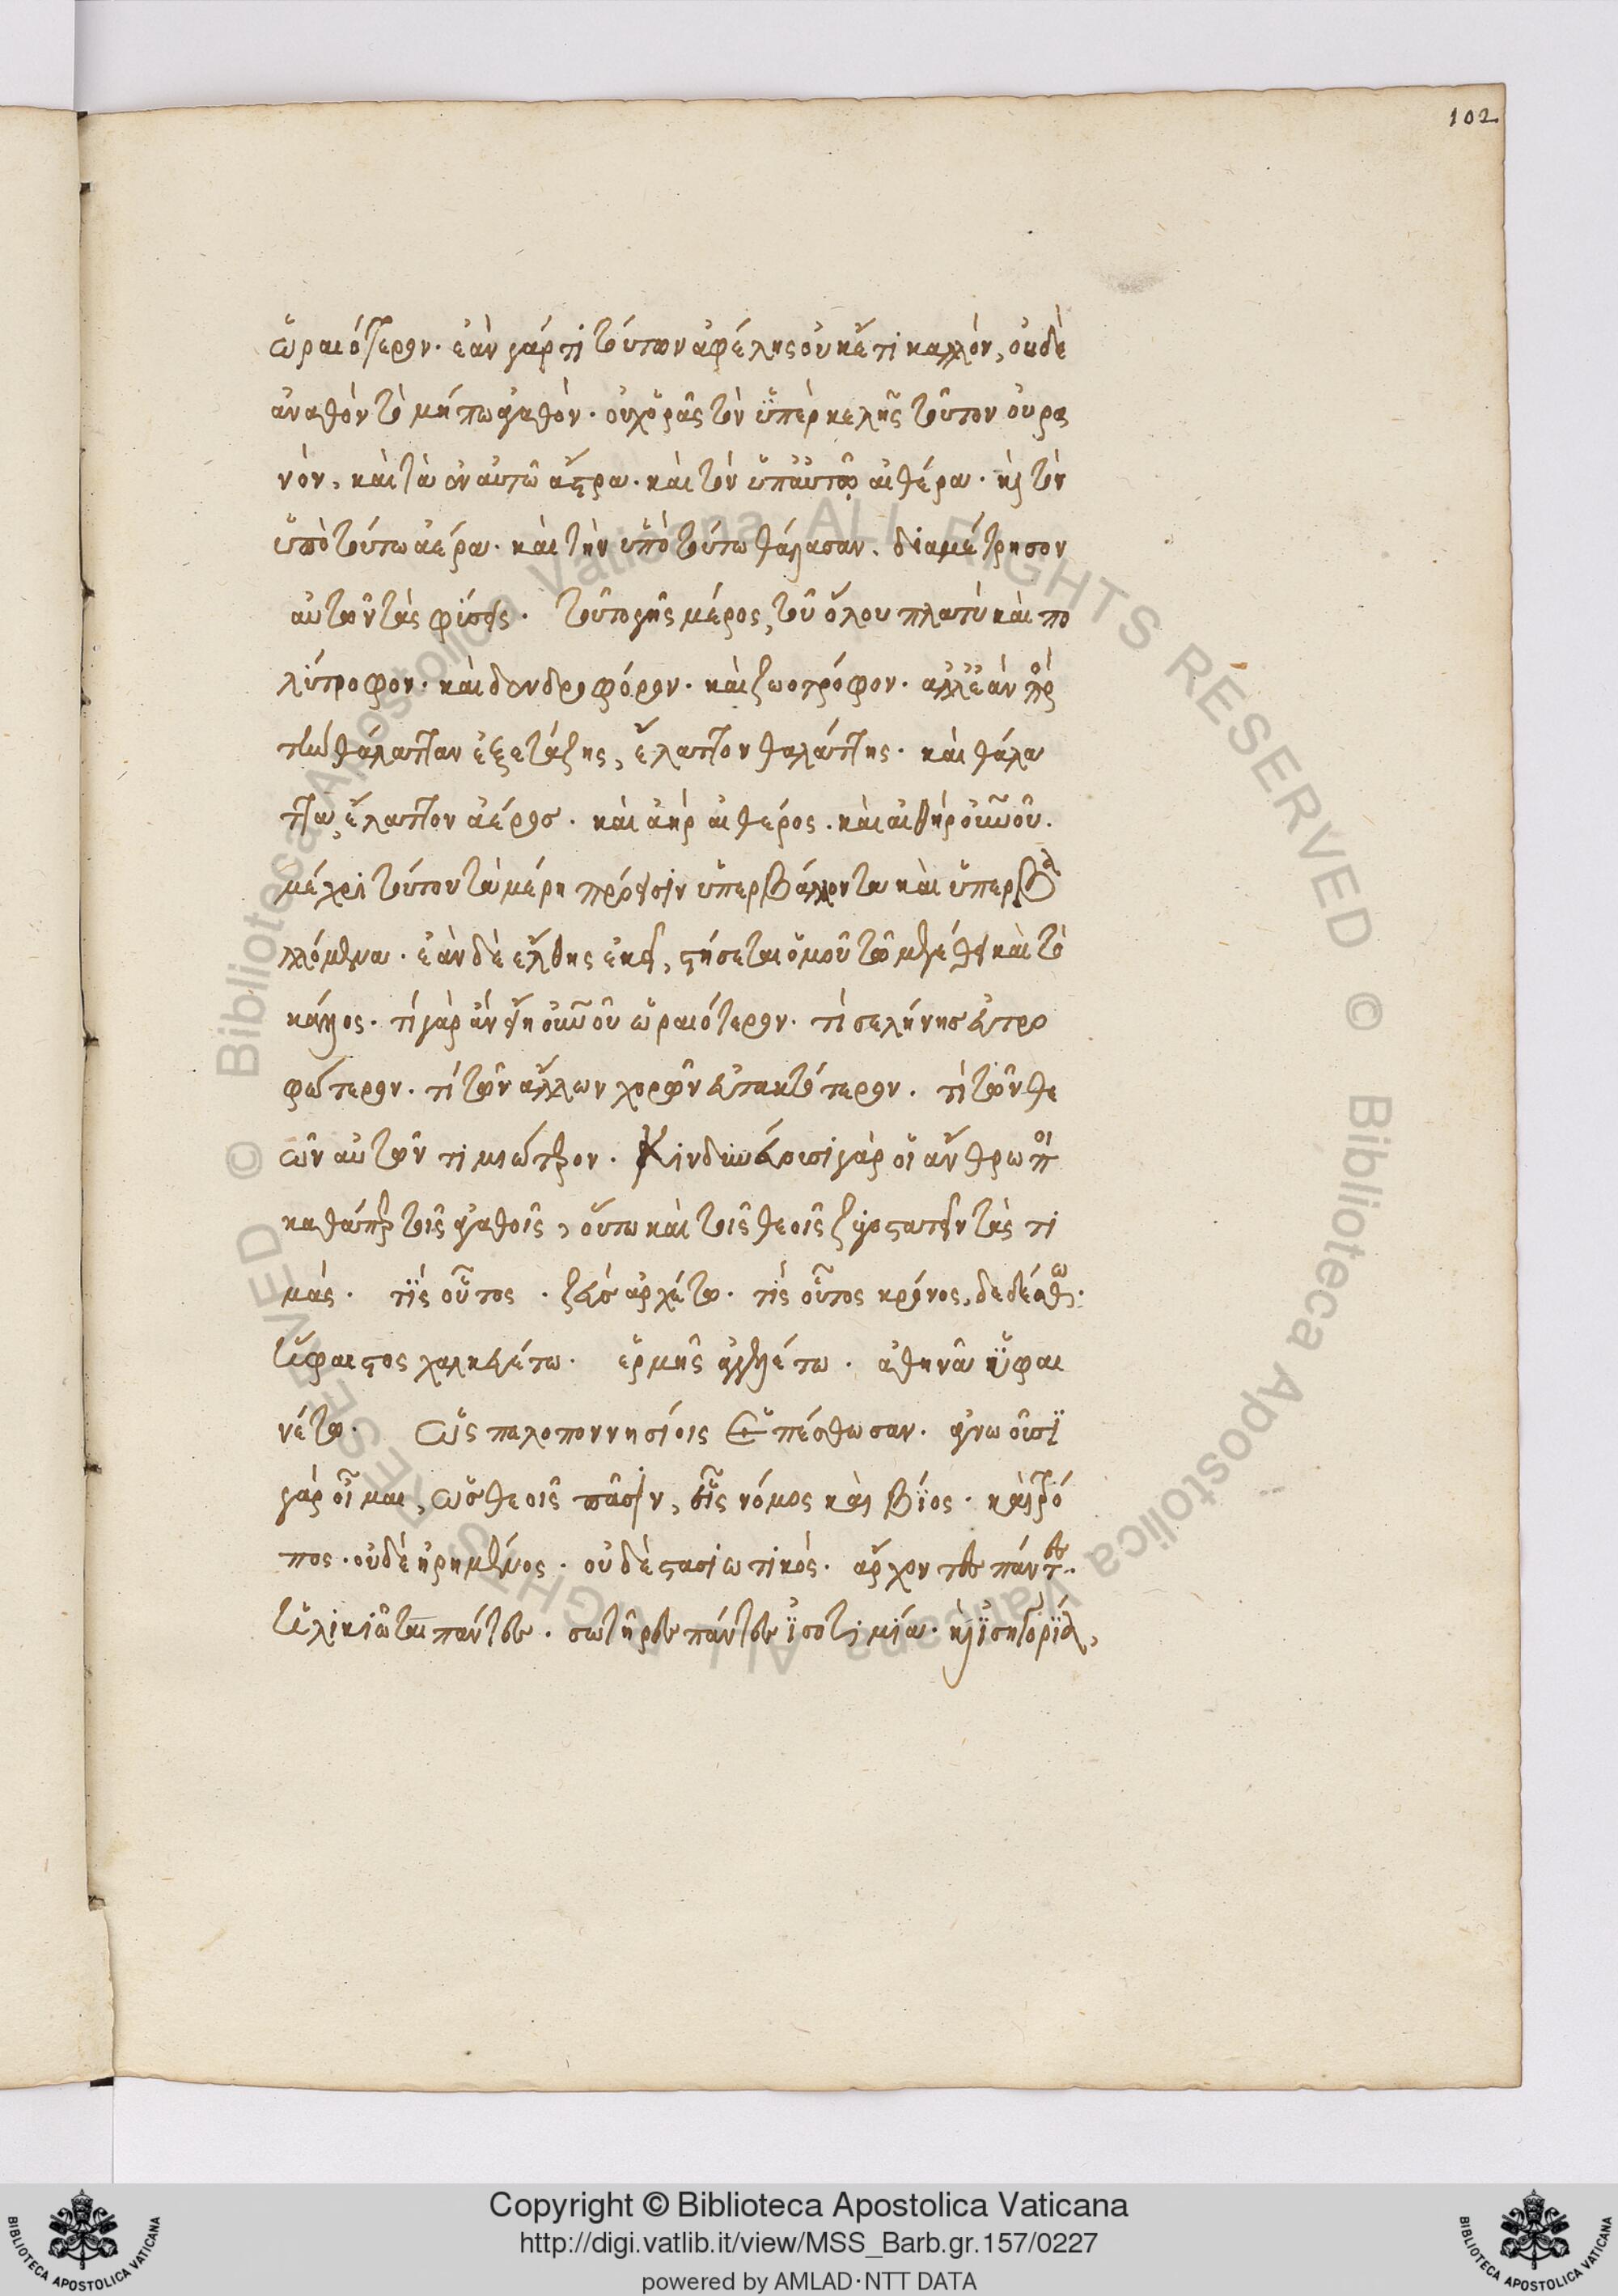 102
ὡραιότερον. ἐὰν γάρ τι τούτων ἀφέλης οὐκέτι καλλόν, οὐδὲ
ἀγαθὸν τὸ μήπω ἀγαθόν. οὐχ ὁρᾶς τὸν ὑπὲρ κελῆς τοῦτον οὐρα
νόν, καὶ τὰ ἐν αὐτῶ ἄστρα. καὶ τὸν ὑπ αὐτῶ αἰθέρα. καὶ τὸν
ὑπὸ τούτω ἀέρα. καὶ τὴν ὑπὸ τούτω θάλασαν. διαμέτρησον
αὐτῶν τὰς φύσεις. τοῦτο γῆς μέρος, τοῦ ὅλου πλατὺ καὶ πο
λύτροφον. καὶ δενδροφόρον. καὶ ζωοτρόφον. ἀλλ ἐὰν πρὸς
τὴν θάλατταν ἐξετάζης, ἔλαττον θαλάττης. καὶ θάλα
ττα ἔλαττον ἀέρος. καὶ ἀὴρ αἰθέρος. καὶ αἰθὴρ οὐνοῦ.
μέχρι τούτου τὰ μέρη πρόεισιν ὑπερβάλλοντα καὶ ὑπερβα
λλόμενα. ἐὰν δὲ ἔλθης ἐκεῖ, στήσεται ὁμοῦ τῶ μεγέθει καὶ τὸ
κάλλος. τί γὰρ ἂν εἴη οὐνοῦ ὡραιότερον. τί σελήνης εὐτρο
φώτερον. τί τῶν ἄλλων χορῶν εὐτακτότερον. τί τῶν θε
ῶν αὐτῶν τιμιώτερον. Κινδυνεύουσι γὰρ οἱ ἄνθρωποι
καθάπερ τοῖς ἀγαθοῖς, οὕτω καὶ τοῖς θεοῖς ζυγοστατεῖν τὰς τι
μάς. τίς οὗτος. ζεὺς ἀρχέτω. τίς οὗτος κρόνος, δεδέσθω.
ὕφαιστος χαλκευέτω. ἑρμῆς ἀγγελέτω. ἀθηνᾶ ὑφαι
νέτω. ὡς πελοποννησίοις ἑπέσθωσαν. ἀγνοοῦσι
γὰρ οἶμαι, ὡς θεοῖς πᾶσιν, εἷς νόμος καὶ βίος. καὶ τρό
πος. οὐδὲ ᾑρημένος. οὐδὲ στασιωτικός. ἄρχοντες πάντες.
ὑλικιῶται πάντες. σωτῆρες πάντες ἰσοτιμία. καὶ ἰσηγορία,
Copyright © Biblioteca Apostolica Vaticana
http://digi.vatlib.it/view/MSS_Barb.gr.157/0227
powered by AMLAD·NTT DATA
BIBLIOTECA APOSTOLICA VATICANA
BIBLIOTECA APOSTOLICA VATICANA
© Biblioteca Apostolica Vaticana ALL RIGHTS RESERVED © Biblioteca Apostolica Vaticana ALL RIGHTS RESERVED